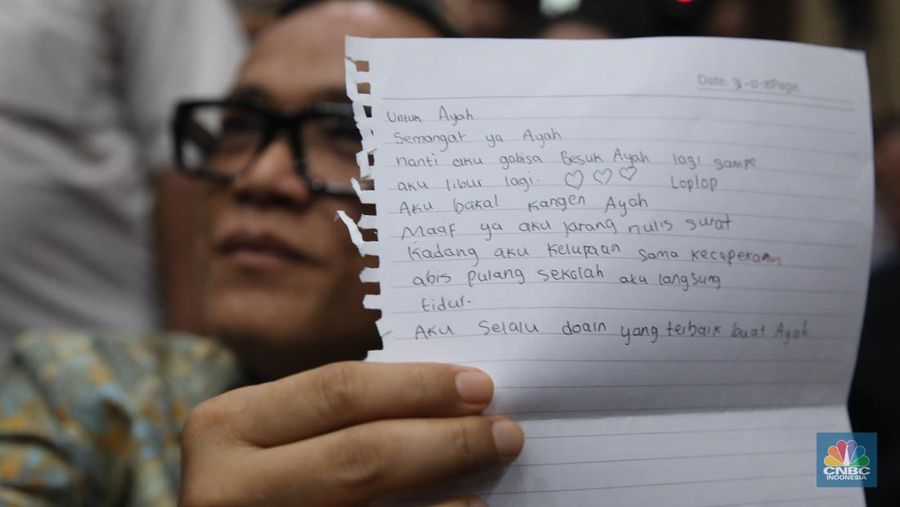 Date. Page
Untuk Ayah
Semangat ya Ayah
nanti aku gabisa Besuk Ayah lagi sampe
aku libur lagi. ♡ ♡ ♡ Loplop
Aku bakal kangen Ayah
Maaf ya aku jarang nulis surat
Kadang aku kelupaan sama kecapekan
abis pulang sekolah aku langsung
tidur.
Aku selalu doain yang terbaik buat Ayah
CNBC
INDONESIA